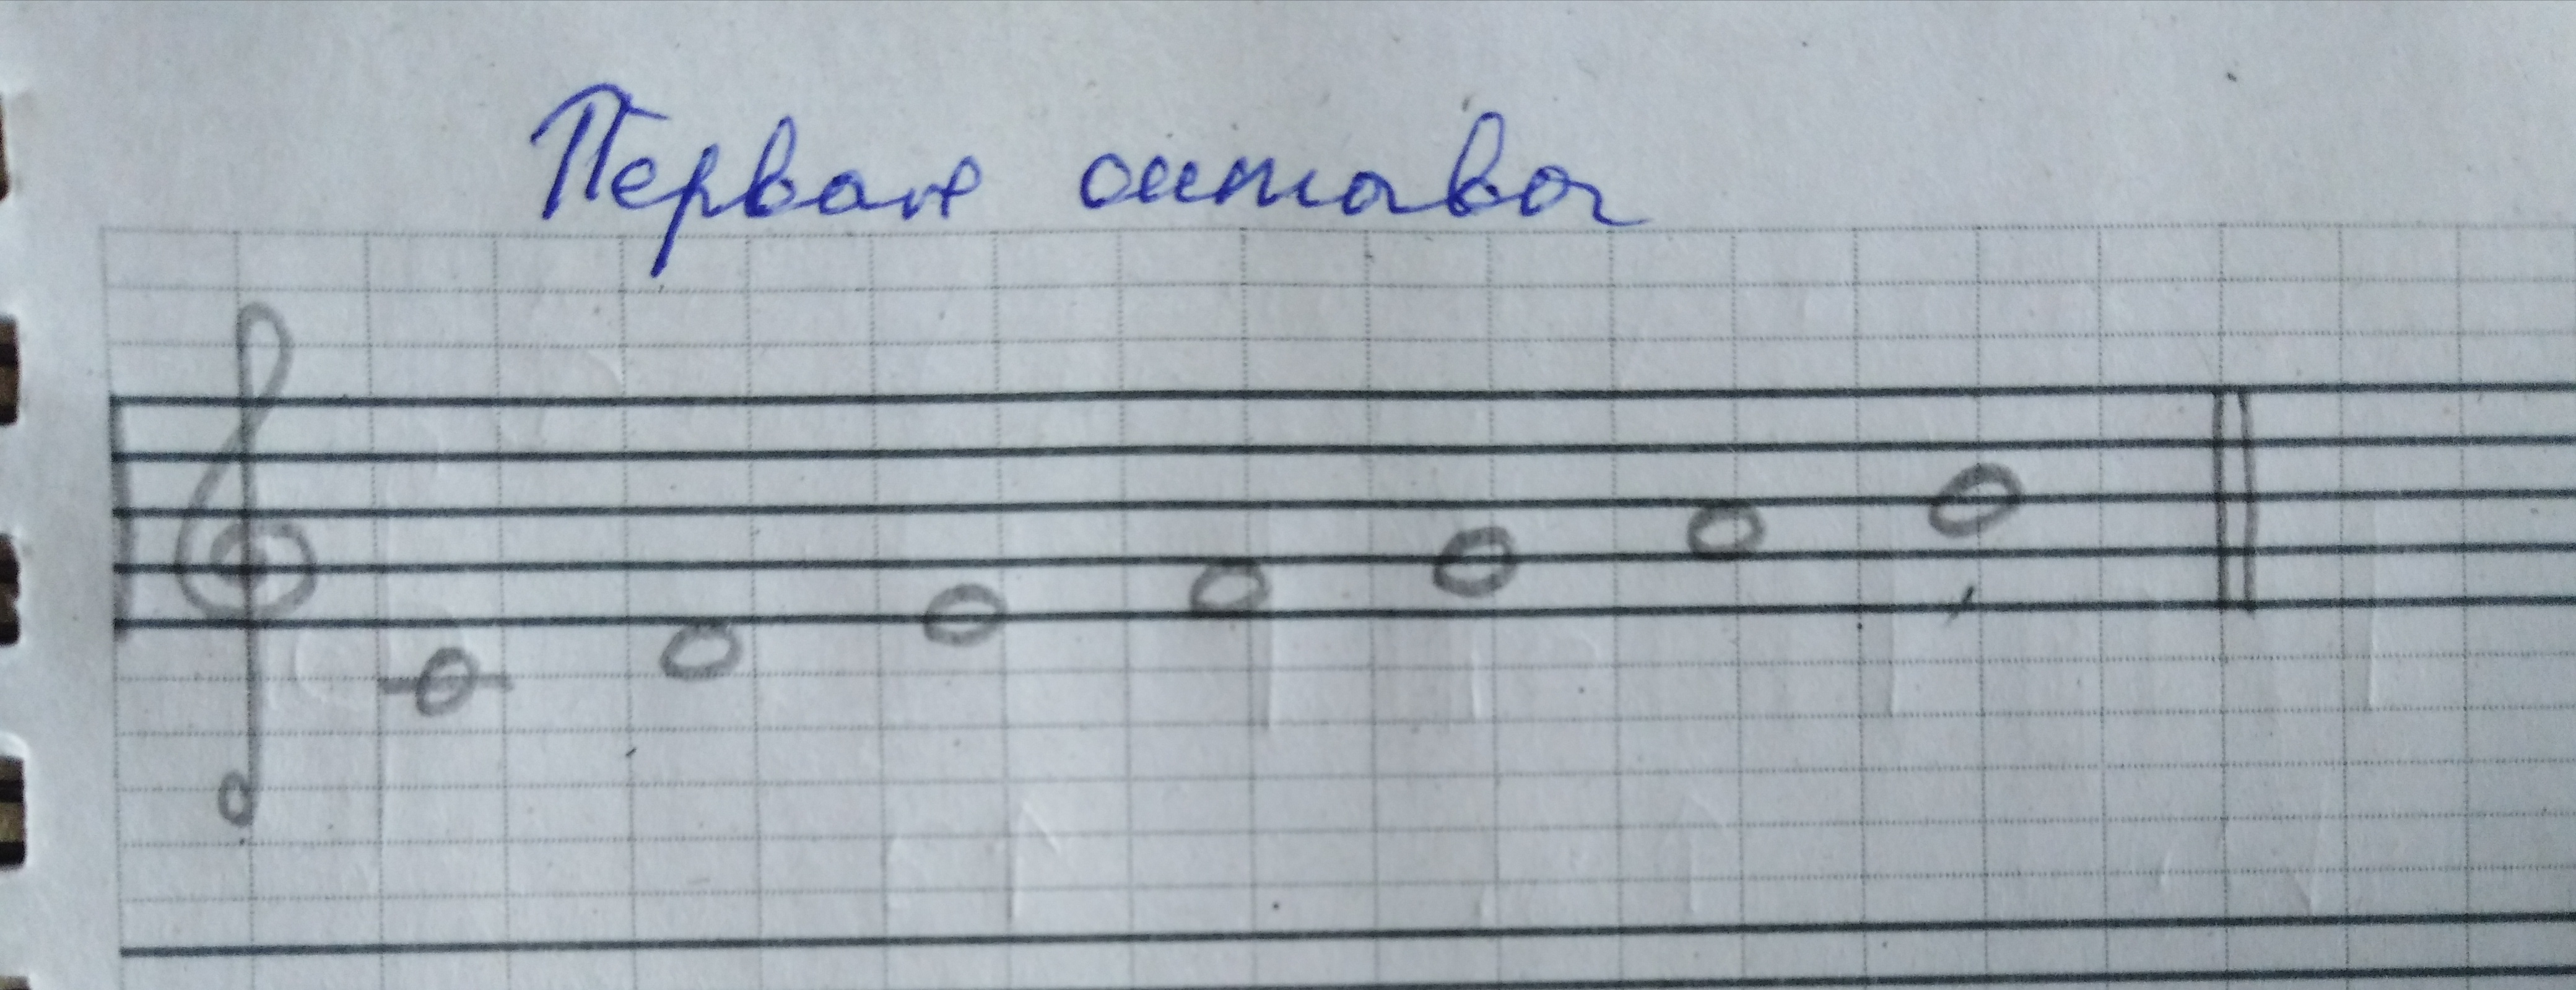 Первая октава